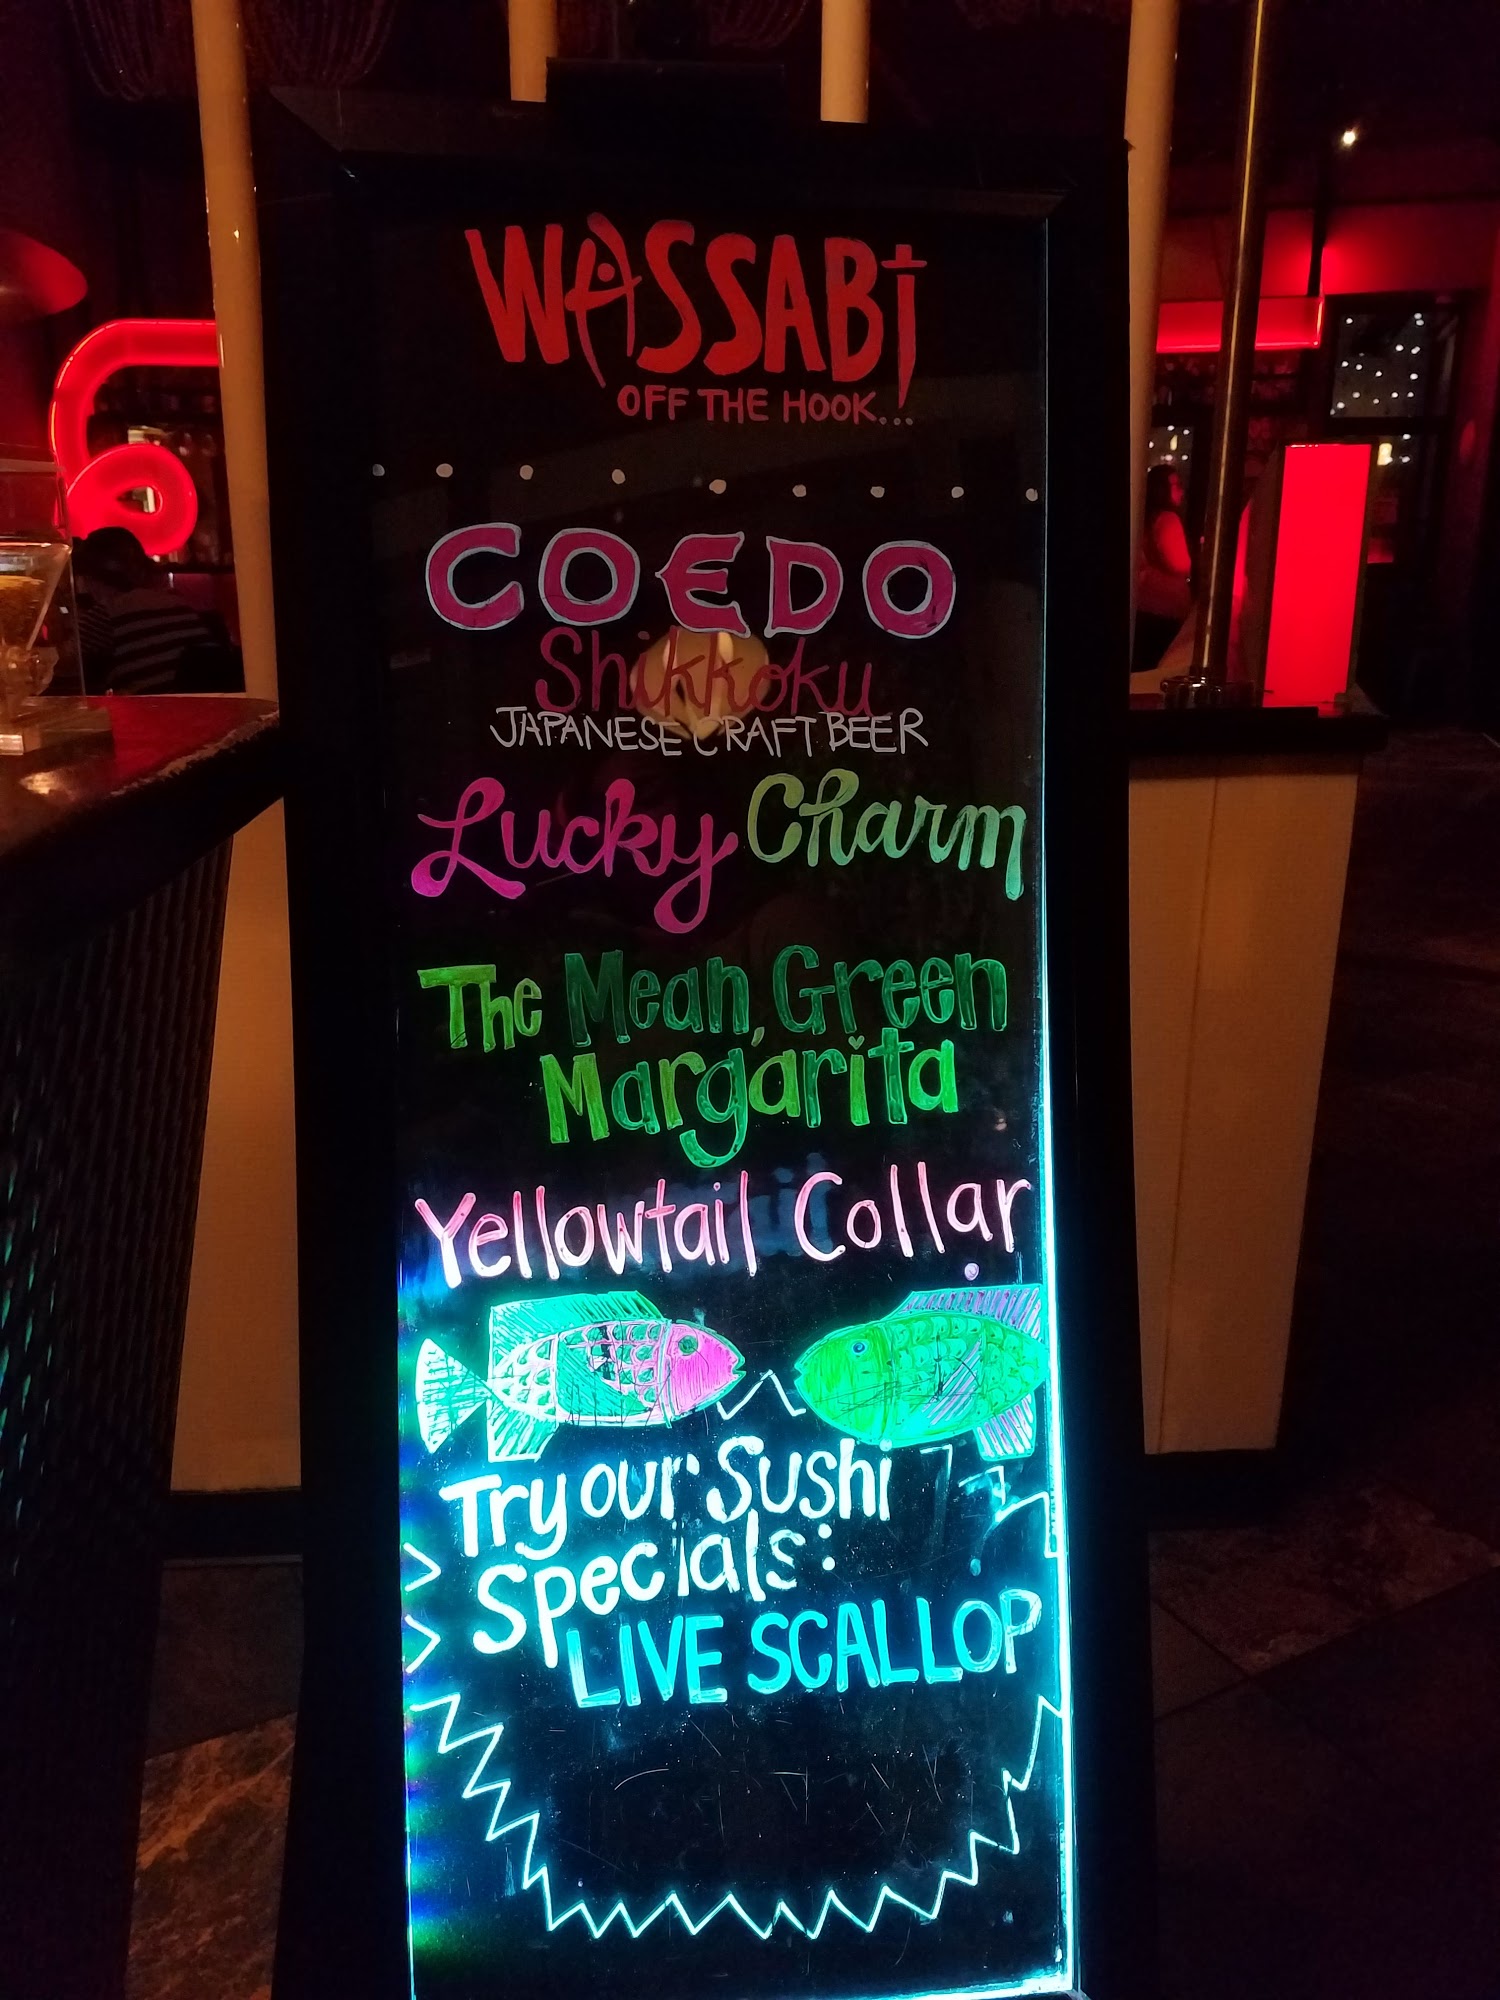 WASSABi
OFF THE HOOK...
COEDO
Shikkoku
JAPANESE CRAFT BEER
Lucky Charm
The Mean, Green
Margarita
Yellowtail Collar
Try our Sushi
Specials:
LIVE SCALLOP